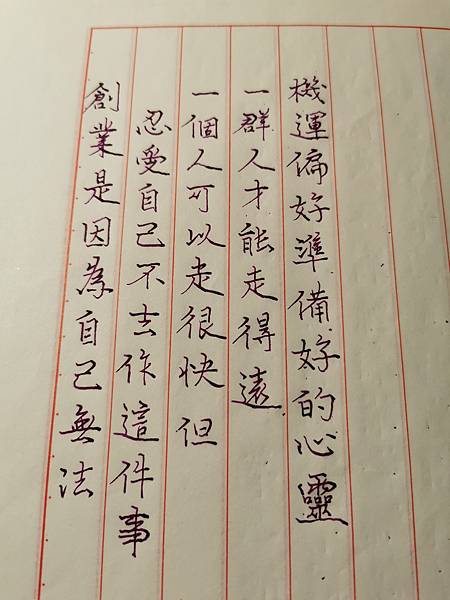 創業是因為自己無法
忍受自己不去作這件事
一個人可以走很快但
一群人才能走得遠
機運偏好準備好的心靈